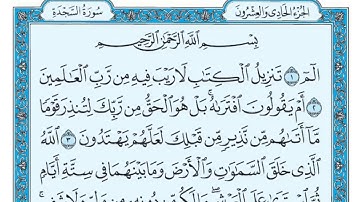 الجزء الحادي والعشرون سورة السجدة
بِسْمِ اللَّهِ الرَّحْمَٰنِ الرَّحِيمِ
الٓمٓ ١ تَنزِيلُ الْكِتَٰبِ لَا رَيْبَ فِيهِ مِن رَّبِّ الْعَٰلَمِينَ
٢ أَمْ يَقُولُونَ افْتَرَىٰهُ بَلْ هُوَ الْحَقُّ مِن رَّبِّكَ لِتُنذِرَ قَوْمًا
مَّآ أَتَىٰهُم مِّن نَّذِيرٍ مِّن قَبْلِكَ لَعَلَّهُمْ يَهْتَدُونَ ٣ اللَّهُ
الَّذِي خَلَقَ السَّمَٰوَٰتِ وَالْأَرْضَ وَمَا بَيْنَهُمَا فِي سِتَّةِ أَيَّامٍ